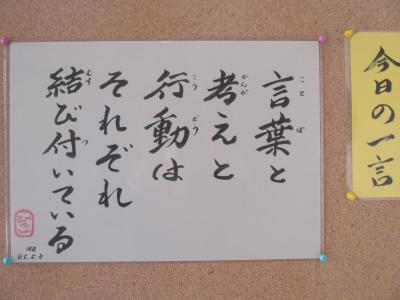 今日の一言
言葉と
考えと
行動は
それぞれ
結び付いている
ことば
かんが
こうどう
むす
つ